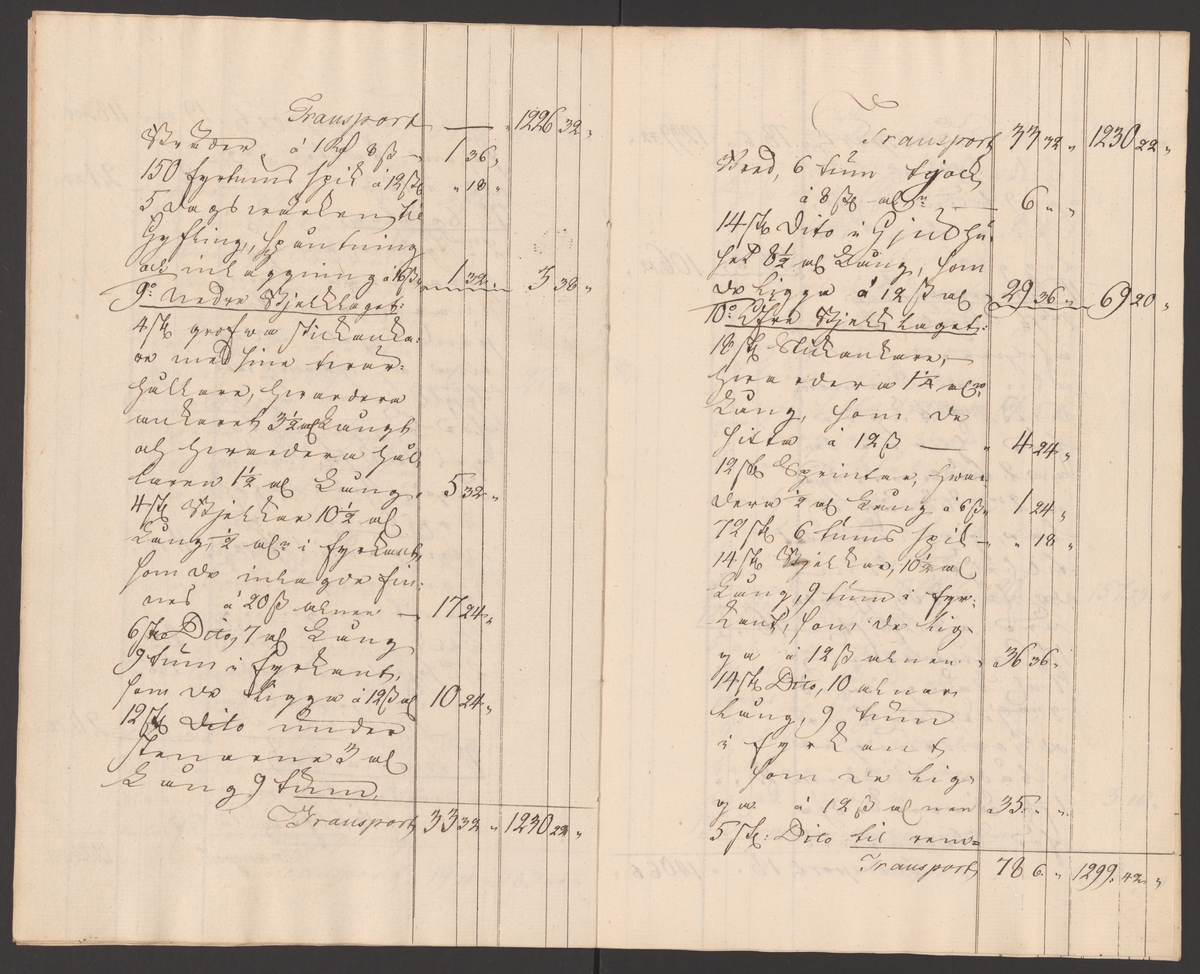 Transport — " 1226 32 "
Bräder à 1 Rd 8 ß — 1 36 "
150 fyrtums spik à 12 ß " 18 "
5 Dagswärken til
Hyfling, spåntning
och inläggning à 16 ß 1 32 " 3 38 "
9:o Nedre Bjelklaget:
4 st grofwa stickanka:
re med sine twär:
hållare, hwardera
ankaret 3 1/2 al långt
och hwardera hål
laren 1 1/2 al lång, 5 32 "
4 st Bjelkar 10 1/2 al
lång, 1/2 aln i fyrkant,
som de inlagde fin:
nes à 20 ß alnen — 17 24 "
6 st Dito, 7 al lång
9 tum i fyrkant,
som de ligga à 12 ß al 10 24 "
12 st Dito under
stenarne 3 al
lång 9 tum
Transport 33 32 " 1230 22 "
Transport 33 32 " 1230 22 "
Bred, 6 tum tjock
à 8 ß aln — 6 " "
14 st Dito i Hjulhu:
set 8 1/2 al lång, som
de ligga à 12 ß al 29 36 " 69 20 "
10:o Öfre Bjelklaget:
18 st Stickankare, —
hwardera 1 1/4 aln
lång, som de
sitta à 12 ß — " 4 24 "
12 st Sprintar, hwar
dera 1/2 al lång à 6 ß " 1 24 "
72 st 6 tums spik — " " 18 "
14 st Bjelkar, 10 1/2 al
lång, 9 tum i fyr:
kant, som de lig
ga à 12 ß alnen " 36 36 "
14 st Dito, 10 alnar
lång, 9 tum
i fyrkant
som de lig
ga à 12 ß alnen 35 " "
5 st: Dito til
Transport 78 6 " 1299. 42 "